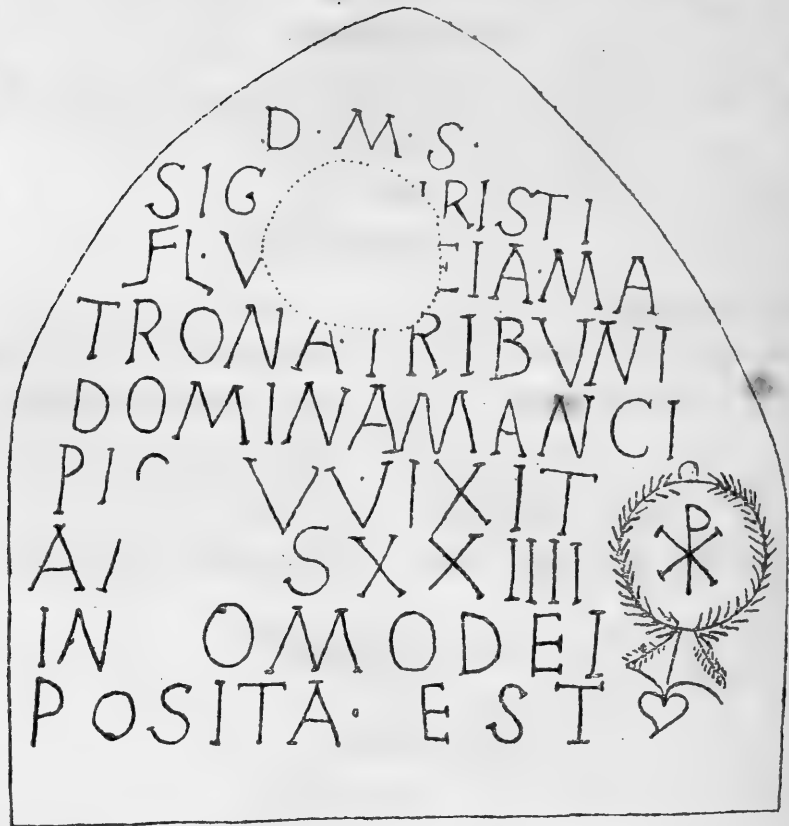 D · M · S ·
SIG RISTI
FL · V EIA · MA
TRONA TRIBVNI
DOMINAMANCI
PIO VVIXIT
AN SXXIIII
IN OMODEI
POSITA · EST